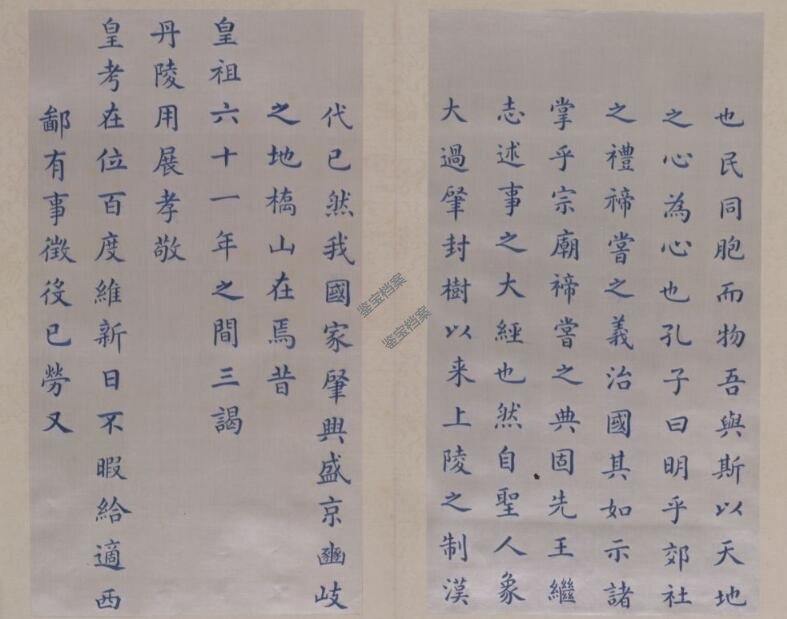 也民同胞而物吾與斯以天地
之心為心也孔子曰明乎郊社
之禮禘嘗之義治國其如示諸
掌乎宗廟禘嘗之典固先王繼
志述事之大經也然自聖人象
大過肇封樹以来上陵之制漢
代已然我國家肇興盛京豳岐
之地橋山在焉昔
皇祖六十一年之間三謁
丹陵用展孝敬
皇考在位百度維新日不暇給適西
鄙有事徴役已勞又
鉴宝档案
鉴宝档案